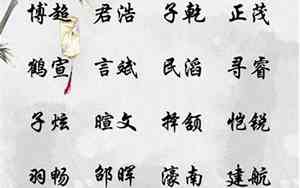 博超 君浩 子乾 正茂
鹤宣 言斌 民滔 寻睿
子炫 暄文 择颔 恺锐
羽畅 邹晖 濠南 建航